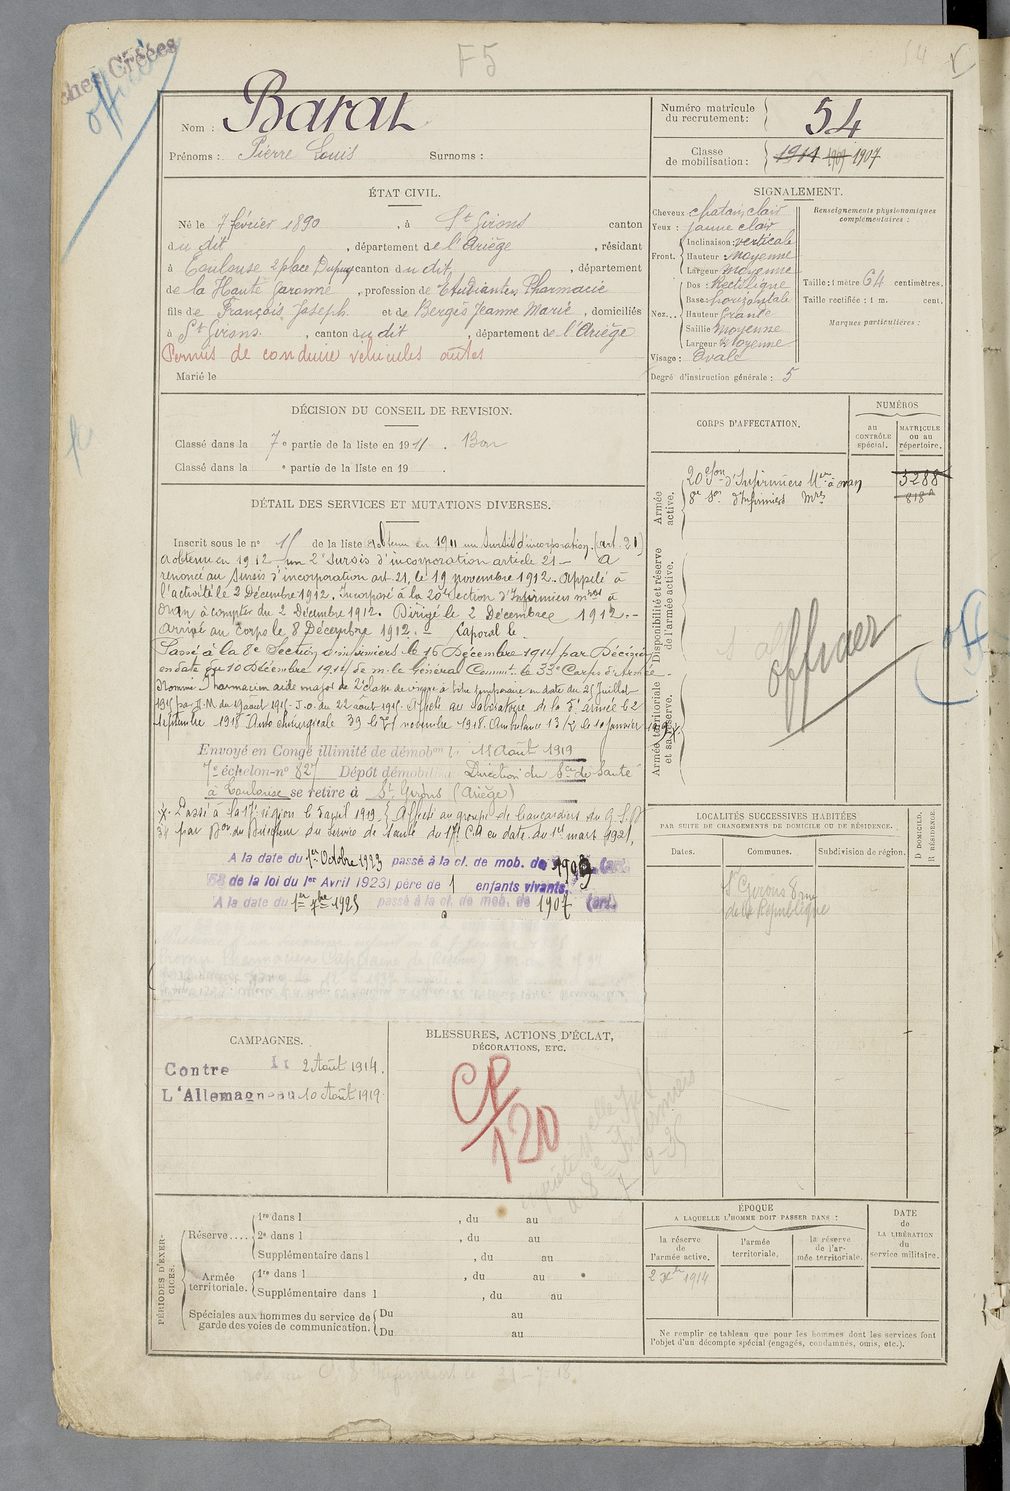 F5
Nom : Barat
Prénoms : Pierre Louis Surnoms :
Numéro matricule
du recrutement : 54
Classe
de mobilisation : 1911 1909 1907
ÉTAT CIVIL.
Né le 7 février 1890, à St Girons canton
du dit, département de l'Ariège, résidant
à Toulouse 2 place Dupuy canton du dit, département
de la Haute Garonne, profession de Etudiant en Pharmacie
fils de François Joseph et de Bergès Jeanne Marie, domiciliés
à St Girons, canton du dit, département de l'Ariège
Permis de conduire véhicules autos
Marié le
SIGNALEMENT.
Cheveux chatain clair
Yeux : jaune clair
Front. Inclinaison : verticale
Hauteur : Moyenne
Largeur : Moyenne
Nez... Dos : Rectiligne
Base : horizontale
Hauteur Grande
Saillie Moyenne
Largeur Moyenne
Visage : Ovale
Renseignements physionomiques
complémentaires :
Taille : 1 mètre 64 centimètres.
Taille rectifiée : 1 m. cent.
Marques particulières :
Degré d'instruction générale : 5
DÉCISION DU CONSEIL DE REVISION.
Classé dans la 7e partie de la liste en 1911. Bon
Classé dans la e partie de la liste en 19 .
CORPS D'AFFECTATION.
NUMÉROS
au
CONTRÔLE
spécial.
MATRICULE
ou au
répertoire.
Armée
active.
20e Son d'Infirmiers Mres à Oran 3288
8e Son d'Infirmiers Mres 818
Disponibilité et réserve
de l'armée active.
Armée territoriale
et sa réserve.
officier
DÉTAIL DES SERVICES ET MUTATIONS DIVERSES.
Inscrit sous le n° 15 de la liste. Obtenu en 1911 un sursis d'incorporation (art. 21)
a obtenu en 1912 un 2e sursis d'incorporation article 21 - A
renoncé au sursis d'incorporation art. 21, le 19 novembre 1912. Appelé à
l'activité le 2 Décembre 1912. Incorporé à la 20e Section d'Infirmiers mres à
Oran à compter du 2 Décembre 1912. Dirigé le 2 Décembre 1912.-
Arrivé au Corps le 8 Décembre 1912.- Caporal le
Passé à la 8e Section d'infirmiers le 16 Décembre 1914 par Décision
en date du 10 Décembre 1914 de mr le Général Commt le 33e Corps d'Armée
Nommé Pharmacien aide major de 2e classe de réserve à titre temporaire en date du 25 Juillet
1915 par D.M. du 19 août 1915 - J.O. du 22 août 1915. Affecté au laboratoire de la 5e armée le 2
Septembre 1918 Auto chirurgicale 39 le 21 novembre 1918. Ambulance 13/2 le 10 janvier 1919
Envoyé en Congé illimité de démobon le 11 Août 1919
7e échelon-n° 827 Dépôt démobilisr Direction du Sce de Santé
à Toulouse se retire à St Girons (Ariège)
Passé à la 17e région le 5 avril 1919. Affecté au groupe de brancardiers du G.S.D
34 par Don du Directeur du Service de Santé du 17e CA en date du 1er mars 1921,
A la date du 1er Octobre 1923 passé à la cl. de mob. de 1909 (art.
58 de la loi du 1er Avril 1923) père de 1 enfants vivants.
A la date du 1er 7bre 1925 passé à la cl. de mob. de 1907 (art.
LOCALITÉS SUCCESSIVES HABITÉES
PAR SUITE DE CHANGEMENTS DE DOMICILE OU DE RÉSIDENCE.
Dates. Communes. Subdivision de région.
D DOMICILE.
R RÉSIDENCE.
St Girons 8 rue
de la République
CAMPAGNES.
Contre 2 Août 1914.
L'Allemagne au 10 Août 1919
BLESSURES, ACTIONS D'ÉCLAT,
DÉCORATIONS, ETC.
CP/120
PÉRIODES D'EXERCICES.
Réserve.... 1re dans l , du au
2e dans l , du au
Supplémentaire dans l , du au
Armée
territoriale. 1re dans l , du au
Supplémentaire dans l , du au
Spéciales aux hommes du service de
garde des voies de communication. Du au
Du au
ÉPOQUE
A LAQUELLE L'HOMME DOIT PASSER DANS :
la réserve
de
l'armée active.
l'armée
territoriale.
la réserve
de l'ar-
mée territoriale.
DATE
de
LA LIBÉRATION
du
service militaire.
2 Xbre 1914
Ne remplir ce tableau que pour les hommes dont les services font
l'objet d'un décompte spécial (engagés, condamnés, omis, etc.).